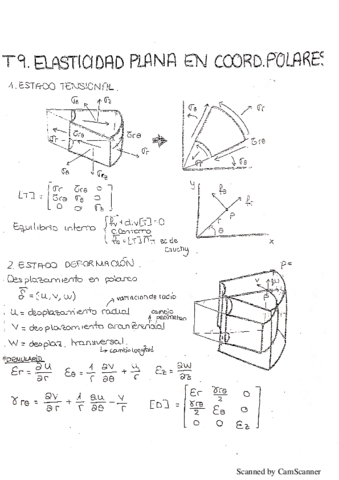 T9. ELASTICIDAD PLANA EN COORD. POLARES
1. ESTADO TENSIONAL.
σθ σz
τrθ
σr
σθ
σz
σr
τrθ
[T] = [σr τrθ 0
τrθ σθ 0
0 0 σz]
y
fθ fr
P
r
θ
x
Equilibrio interno { fv + div[T] = 0
contorno
[T] n → ec de
Cauchy
2. ESTADO DEFORMACIÓN.
Desplazamiento en polares
δ = (u, v, w) variación de radio
u = desplazamiento radial cambio
perímetro
v = desplazamiento circunferencial
w = desplaz. transversal.
↳ cambio longitud
εr = ∂u/∂r εθ = 1/r ∂v/∂θ + u/r εz = ∂w/∂z
γrθ = ∂v/∂r + 1/r ∂u/∂θ - v/r [D] = [εr γrθ/2 0
γrθ/2 εθ 0
0 0 εz]
Scanned by CamScanner